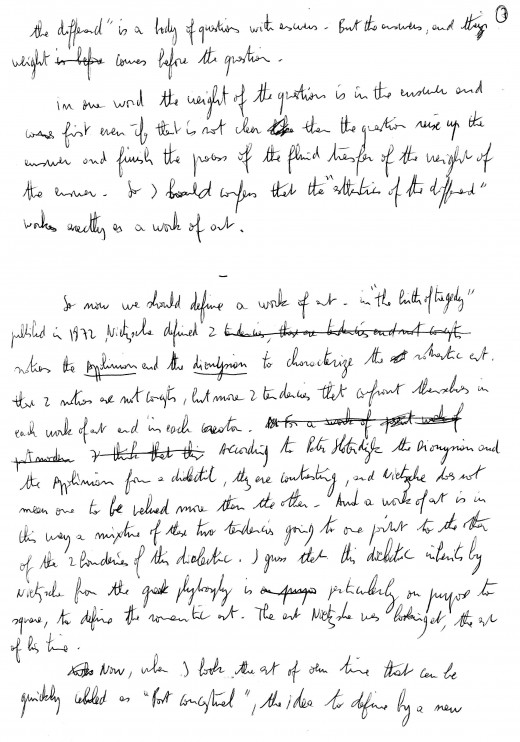 3
the differend" is a body of questions with answers. But the answers, and their
weight is before comes before the question.
in one word the weight of the questions is in the answer and
comes first even if that is not clear then the question raise up the
answer and finish the process of the fluid transfer of the weight of
the answer. So I would confess that the "esthetics of the differend"
works exactly as a work of art.
–
So now we should define a work of art. in "the birth of tragedy"
publied in 1872, Nietzsche defined 2 tendencies, these are tendencies and not concepts
notions the Applinian and the dionysian to characterize the romantic art.
these 2 notions are not concepts, but more 2 tendencies that confront themselves in
each work of art and in each creator. for a work of work of
I think that this According to Peter Sloterdijk the Dionysian and
the Applinian form a dialectic, they are contrasting, and Nietzsche does not
mean one to be valued more than the other. And a work of art is in
this way a mixture of these two tendencies going to one point to the other
of the 2 bonderies of this dialectic. I guess that this dialectic inherits by
Nietzsche from the greek phylosophy is on purpose particularly on purpose to
square, to define the romantic art. The art Nietzsche was looking at, the art
of his time.
Now, when I look the art of our time that can be
quickly labeled as "Post conceptual", the idea to define by a new